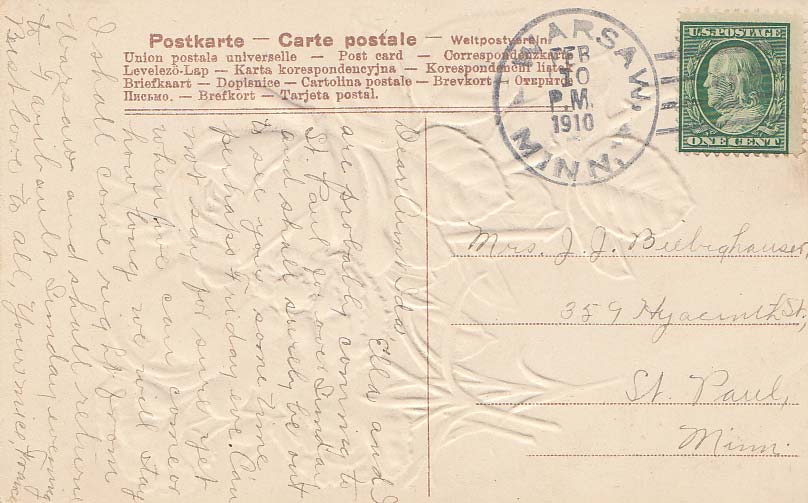 Postkarte — Carte postale — Weltpostverein
Union postale universelle — Post card — Correspondenzkarte
Levelező-Lap — Karta korespondencyjna — Korespondenční lístek
Briefkaart — Dopisnice — Cartolina postale — Brevkort — Открытое
Письмо. — Brefkort — Tarjeta postal.
WARSAW,
FEB
10
P.M.
1910
MINN.
U.S. POSTAGE
ONE CENT
Mrs. J. J. Bielighauser,
359 Hyacinth St,
St. Paul,
Minn.
Dear Aunt Ida, Ella and I
are probably coming to
St. Paul for over Sunday
and shall surely be out
to see you some time
perhaps Friday eve. Can
not say for sure yet
when we can come or
how long we will stay
I shall come right from
Warsaw and shall return
to Faribault Sunday evening
Best love to all, Your niece,